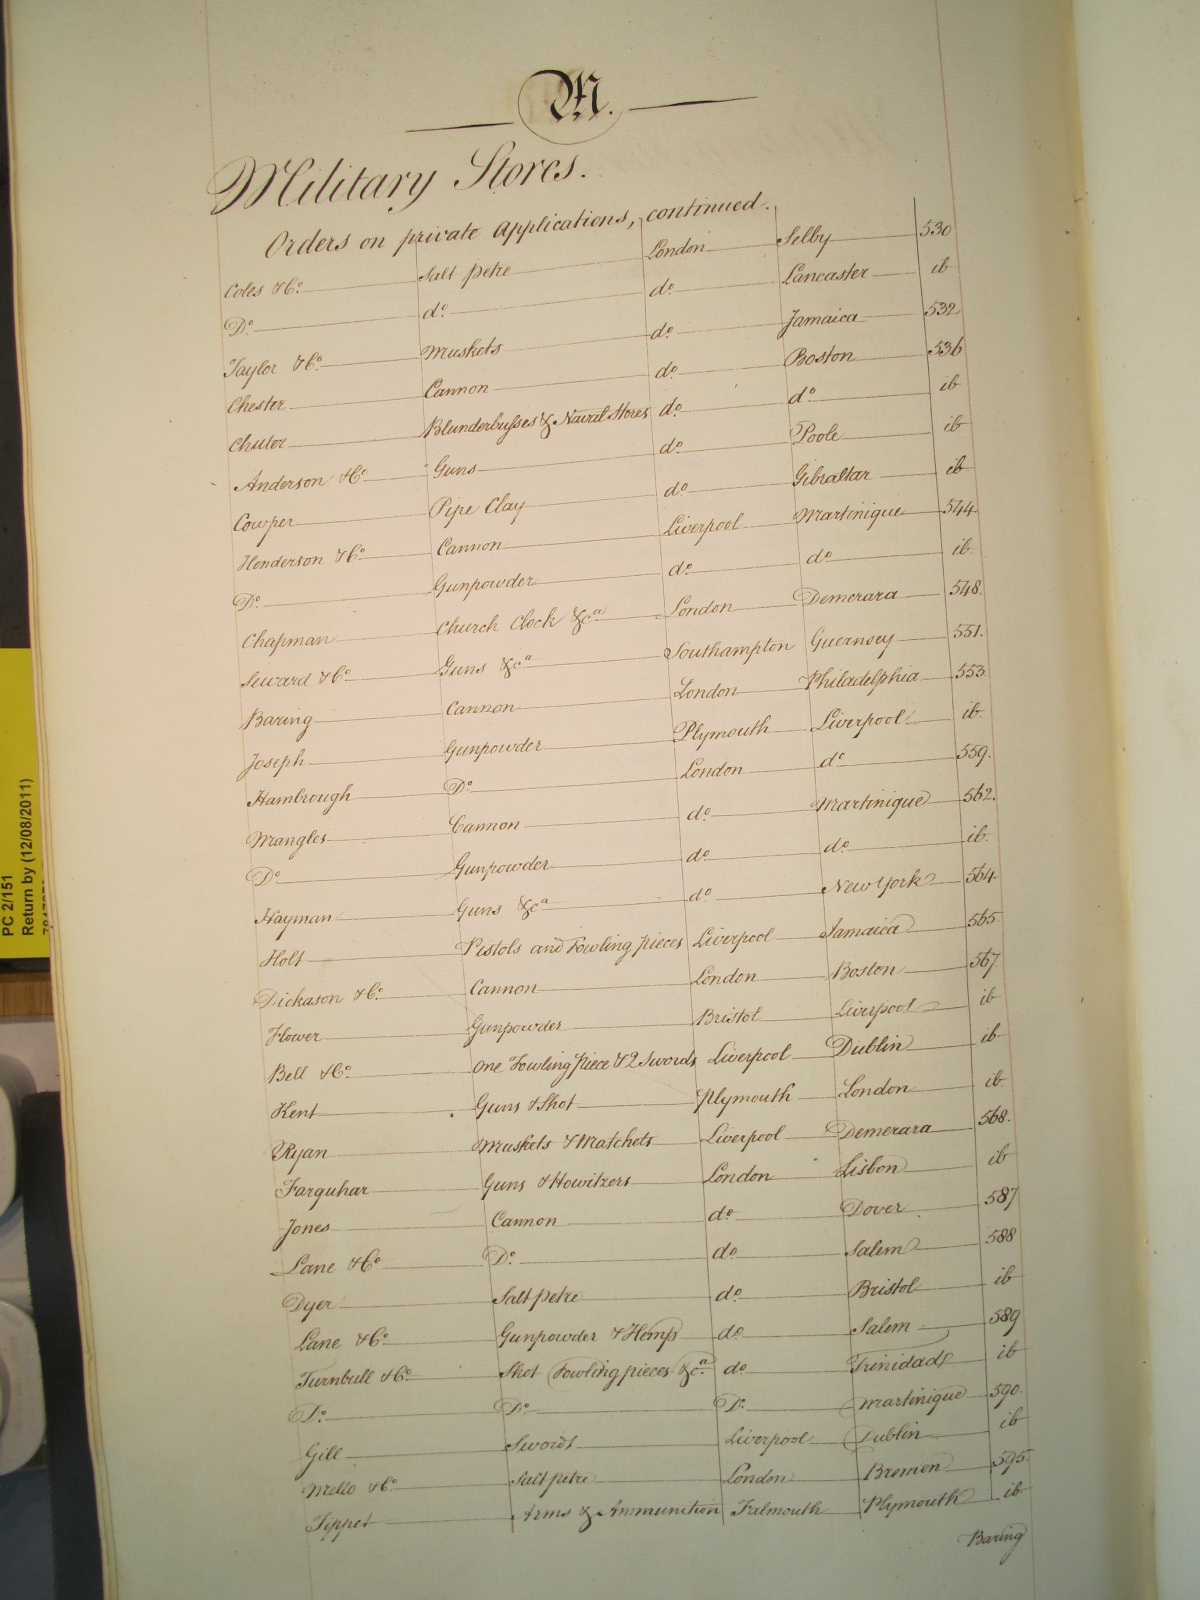 M.
Military Stores.
Orders on private Applications, continued.
Coles & Co. Salt petre London Selby 530
Do. do. do. Lancaster ib
Taylor & Co. Muskets do. Jamaica 532
Chester Cannon do. Boston 536
Chuter Blunderbusses & Naval Stores do. do. ib
Anderson & Co. Guns do. Poole ib
Cowper Pipe Clay do. Gibraltar ib
Henderson & Co. Cannon Liverpool Martinique 544
Do. Gunpowder do. do. ib.
Chapman Church Clock &ca London Demerara 548.
Seward & Co. Guns &ca Southampton Guernsey 551.
Baring Cannon London Philadelphia 553
Joseph Gunpowder Plymouth Liverpool ib.
Hambrough Do. London do. 559.
Mangles Cannon do. Martinique 562.
Do. Gunpowder do. do. ib.
Hayman Guns &ca do. New York 564.
Holt Pistols and Fowling pieces Liverpool Jamaica 565.
Dickason & Co. Cannon London Boston 567
Flower Gunpowder Bristol Liverpool ib
Bell & Co. One Fowling piece & 2 Swords Liverpool Dublin ib
Kent Guns & Shot Plymouth London ib.
Ryan Muskets & Matchets Liverpool Demerara 568.
Farquhar Guns & Howitzers London Lisbon ib
Jones Cannon do. Dover 587
Lane & Co. Do. do. Salem 588
Dyer Salt petre do. Bristol ib
Lane & Co. Gunpowder & Hemp do. Salem 589
Turnbull & Co. Shot Fowling pieces &ca. do. Trinidad ib
Do. Do. Do. Martinique 590.
Gill Swords Liverpool Dublin ib
Mello & Co. Salt petre London Bremen 595.
Tippet Arms & Ammunition Falmouth Plymouth ib
Baring
PC 2/151
Return by (12/08/2011)